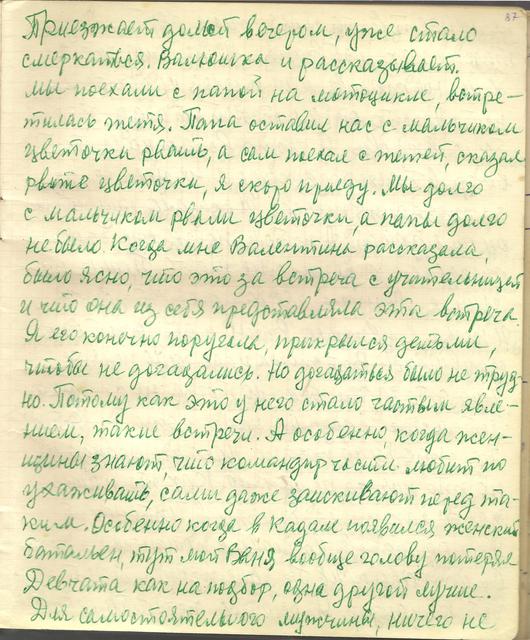 87
Приезжает домой вечером, уже стало
смеркаться. Валюшка и рассказывает.
мы поехали с папой на мотоцикле, встре-
тилась тётя. Папа оставил нас с мальчиком
цветочки рвать, а сам поехал с тётей, сказал
рвите цветочки, я скоро приеду. Мы долго
с мальчиком рвали цветочки, а папы долго
не было Когда мне Валентина рассказала,
было ясно, что это за встреча с учительницей
и что она из себя представляла эта встреча
Я его конечно поругала, прикрылся детьми,
чтобы не догадались. Но догадаться было не труд-
но. Потому как это у него стало частым явле-
нием, такие встречи. А особенно, когда жен-
щины знают, что командир части любит по
ухаживать, сами даже заискивают перед та-
ким. Особенно когда в Кадам появился женский
батальен, тут мой Ваня вообще голову потерял
Девчата как на подбор, одна другой лучше.
Для самостоятельного мужчины, ничего не